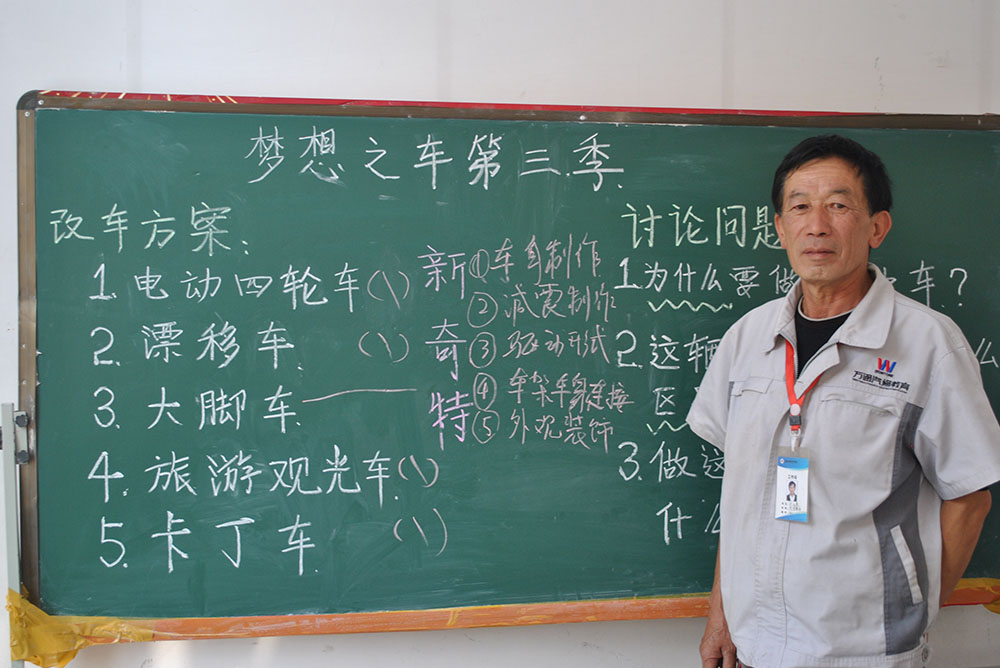 梦想之车第三季
改车方案:
1. 电动四轮车(\)
2. 漂移车 (\)
3. 大脚车
4. 旅游观光车(\)
5. 卡丁车 (\)
新奇特
①车身制作
②减震制作
③驱动开试
④车架车身连接
⑤外观装饰
讨论问题
1. 为什么要做 车?
2. 这辆 么
区
3. 做这
什么
W
万通汽修教育